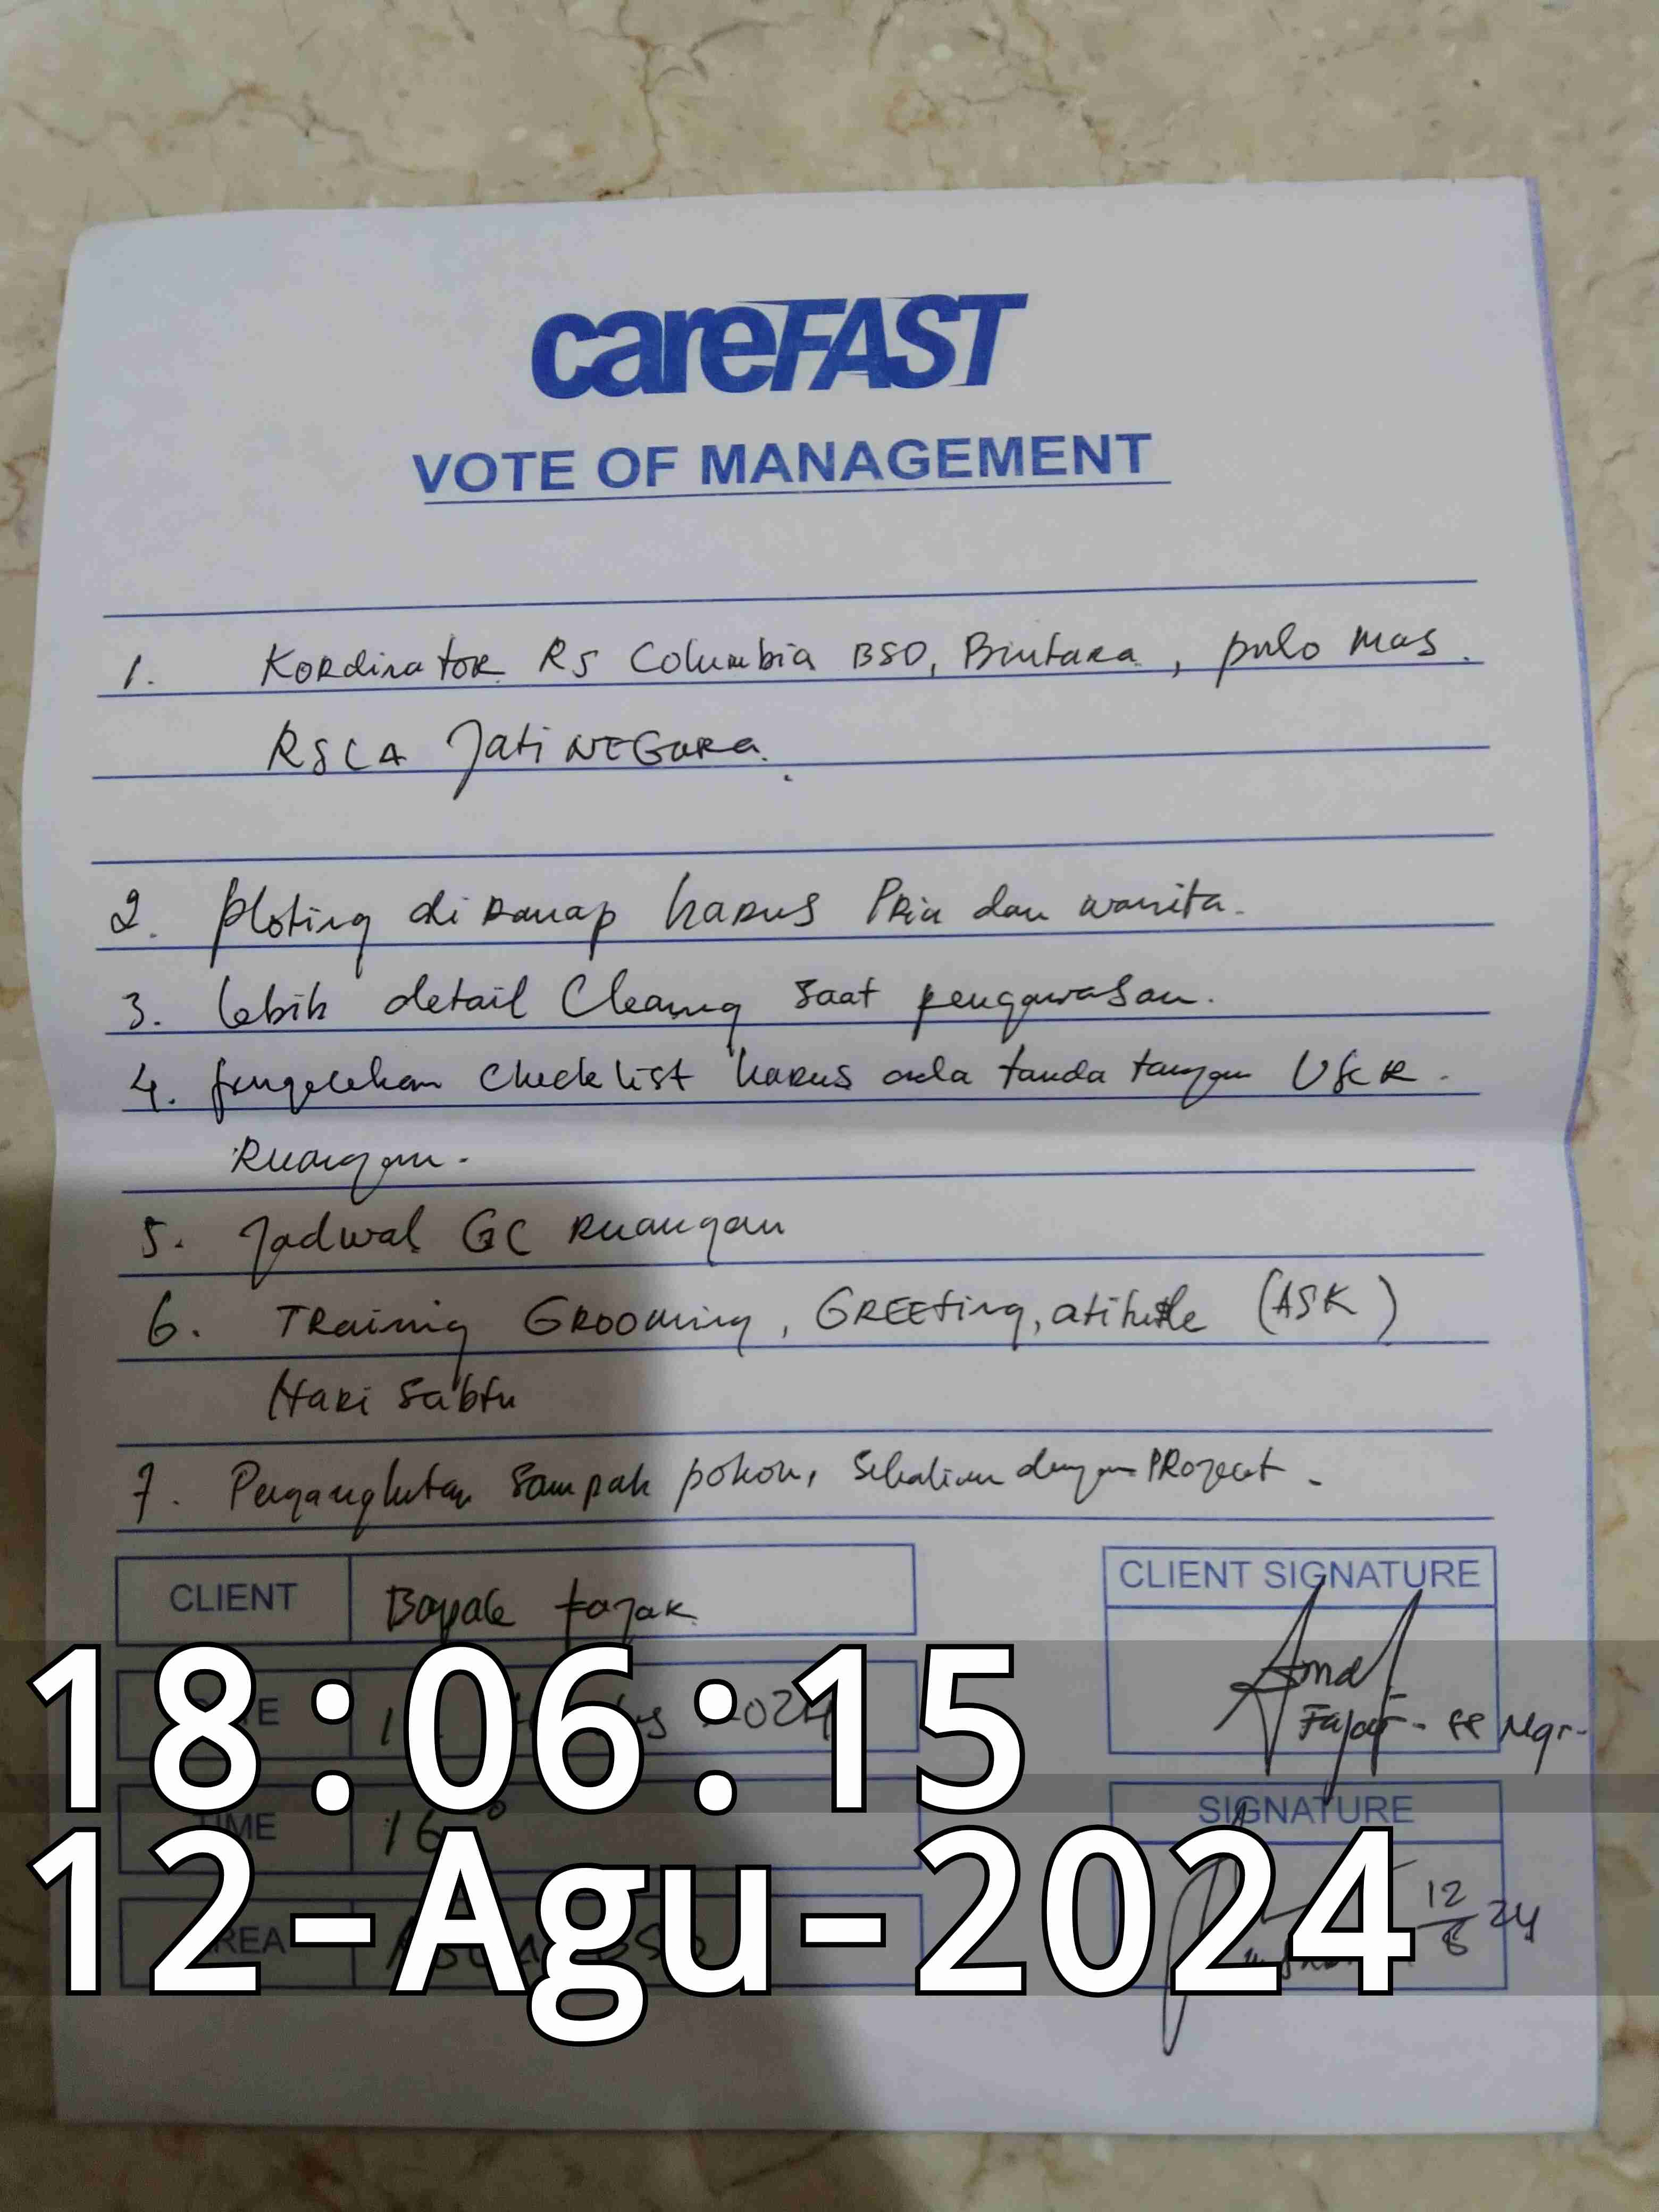 careFAST
VOTE OF MANAGEMENT
1. Kordinator RS Columbia BSD, Bintara, pulo Mas.
RSCA JatiNEGara.
2. ploting di Ranap harus Pria dan wanita.
3. lebih detail Cleaning saat pengawasan.
4. pengecekan Checklist harus ada tanda tangan USER.
Ruangan.
5. Jadwal GC Ruangan
6. TRaining GROOming, GREEting, atitude (ASK)
Hari Sabtu
7. Pengangkutan Sampah pohon, sekalian dengan PROject.
CLIENT Bapak Fajar
CLIENT SIGNATURE
Fajar - Mgr-
18:06:15
2024
TIME 16
SIGNATURE
12-Agu-2024
12/8 24
AREA